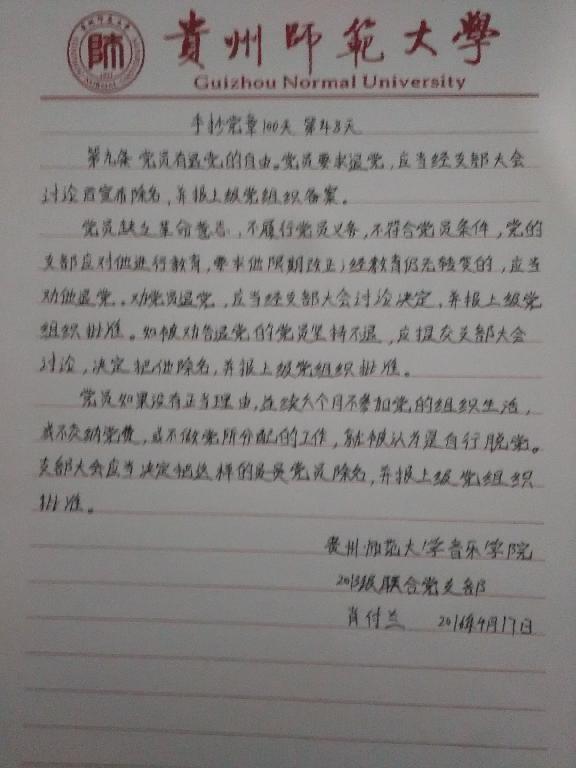 貴州師範大學
Guizhou Normal University
手抄党章100天 第48天
第九条 党员有退党的自由。党员要求退党，应当经支部大会
讨论后宣布除名，并报上级党组织备案。
党员缺乏革命意志，不履行党员义务，不符合党员条件，党的
支部应对他进行教育，要求他限期改正；经教育仍无转变的，应当
劝他退党。劝党员退党，应当经支部大会讨论决定，并报上级党
组织批准。如被劝告退党的党员坚持不退，应提交支部大会
讨论，决定把他除名，并报上级党组织批准。
党员如果没有正当理由，连续六个月不参加党的组织生活，
或不交纳党费，或不做党所分配的工作，就被认为是自行脱党。
支部大会应当决定把这样的党员除名，并报上级党组织
批准。
贵州师范大学音乐学院
2013级联合党支部
肖付兰 2016年4月17日